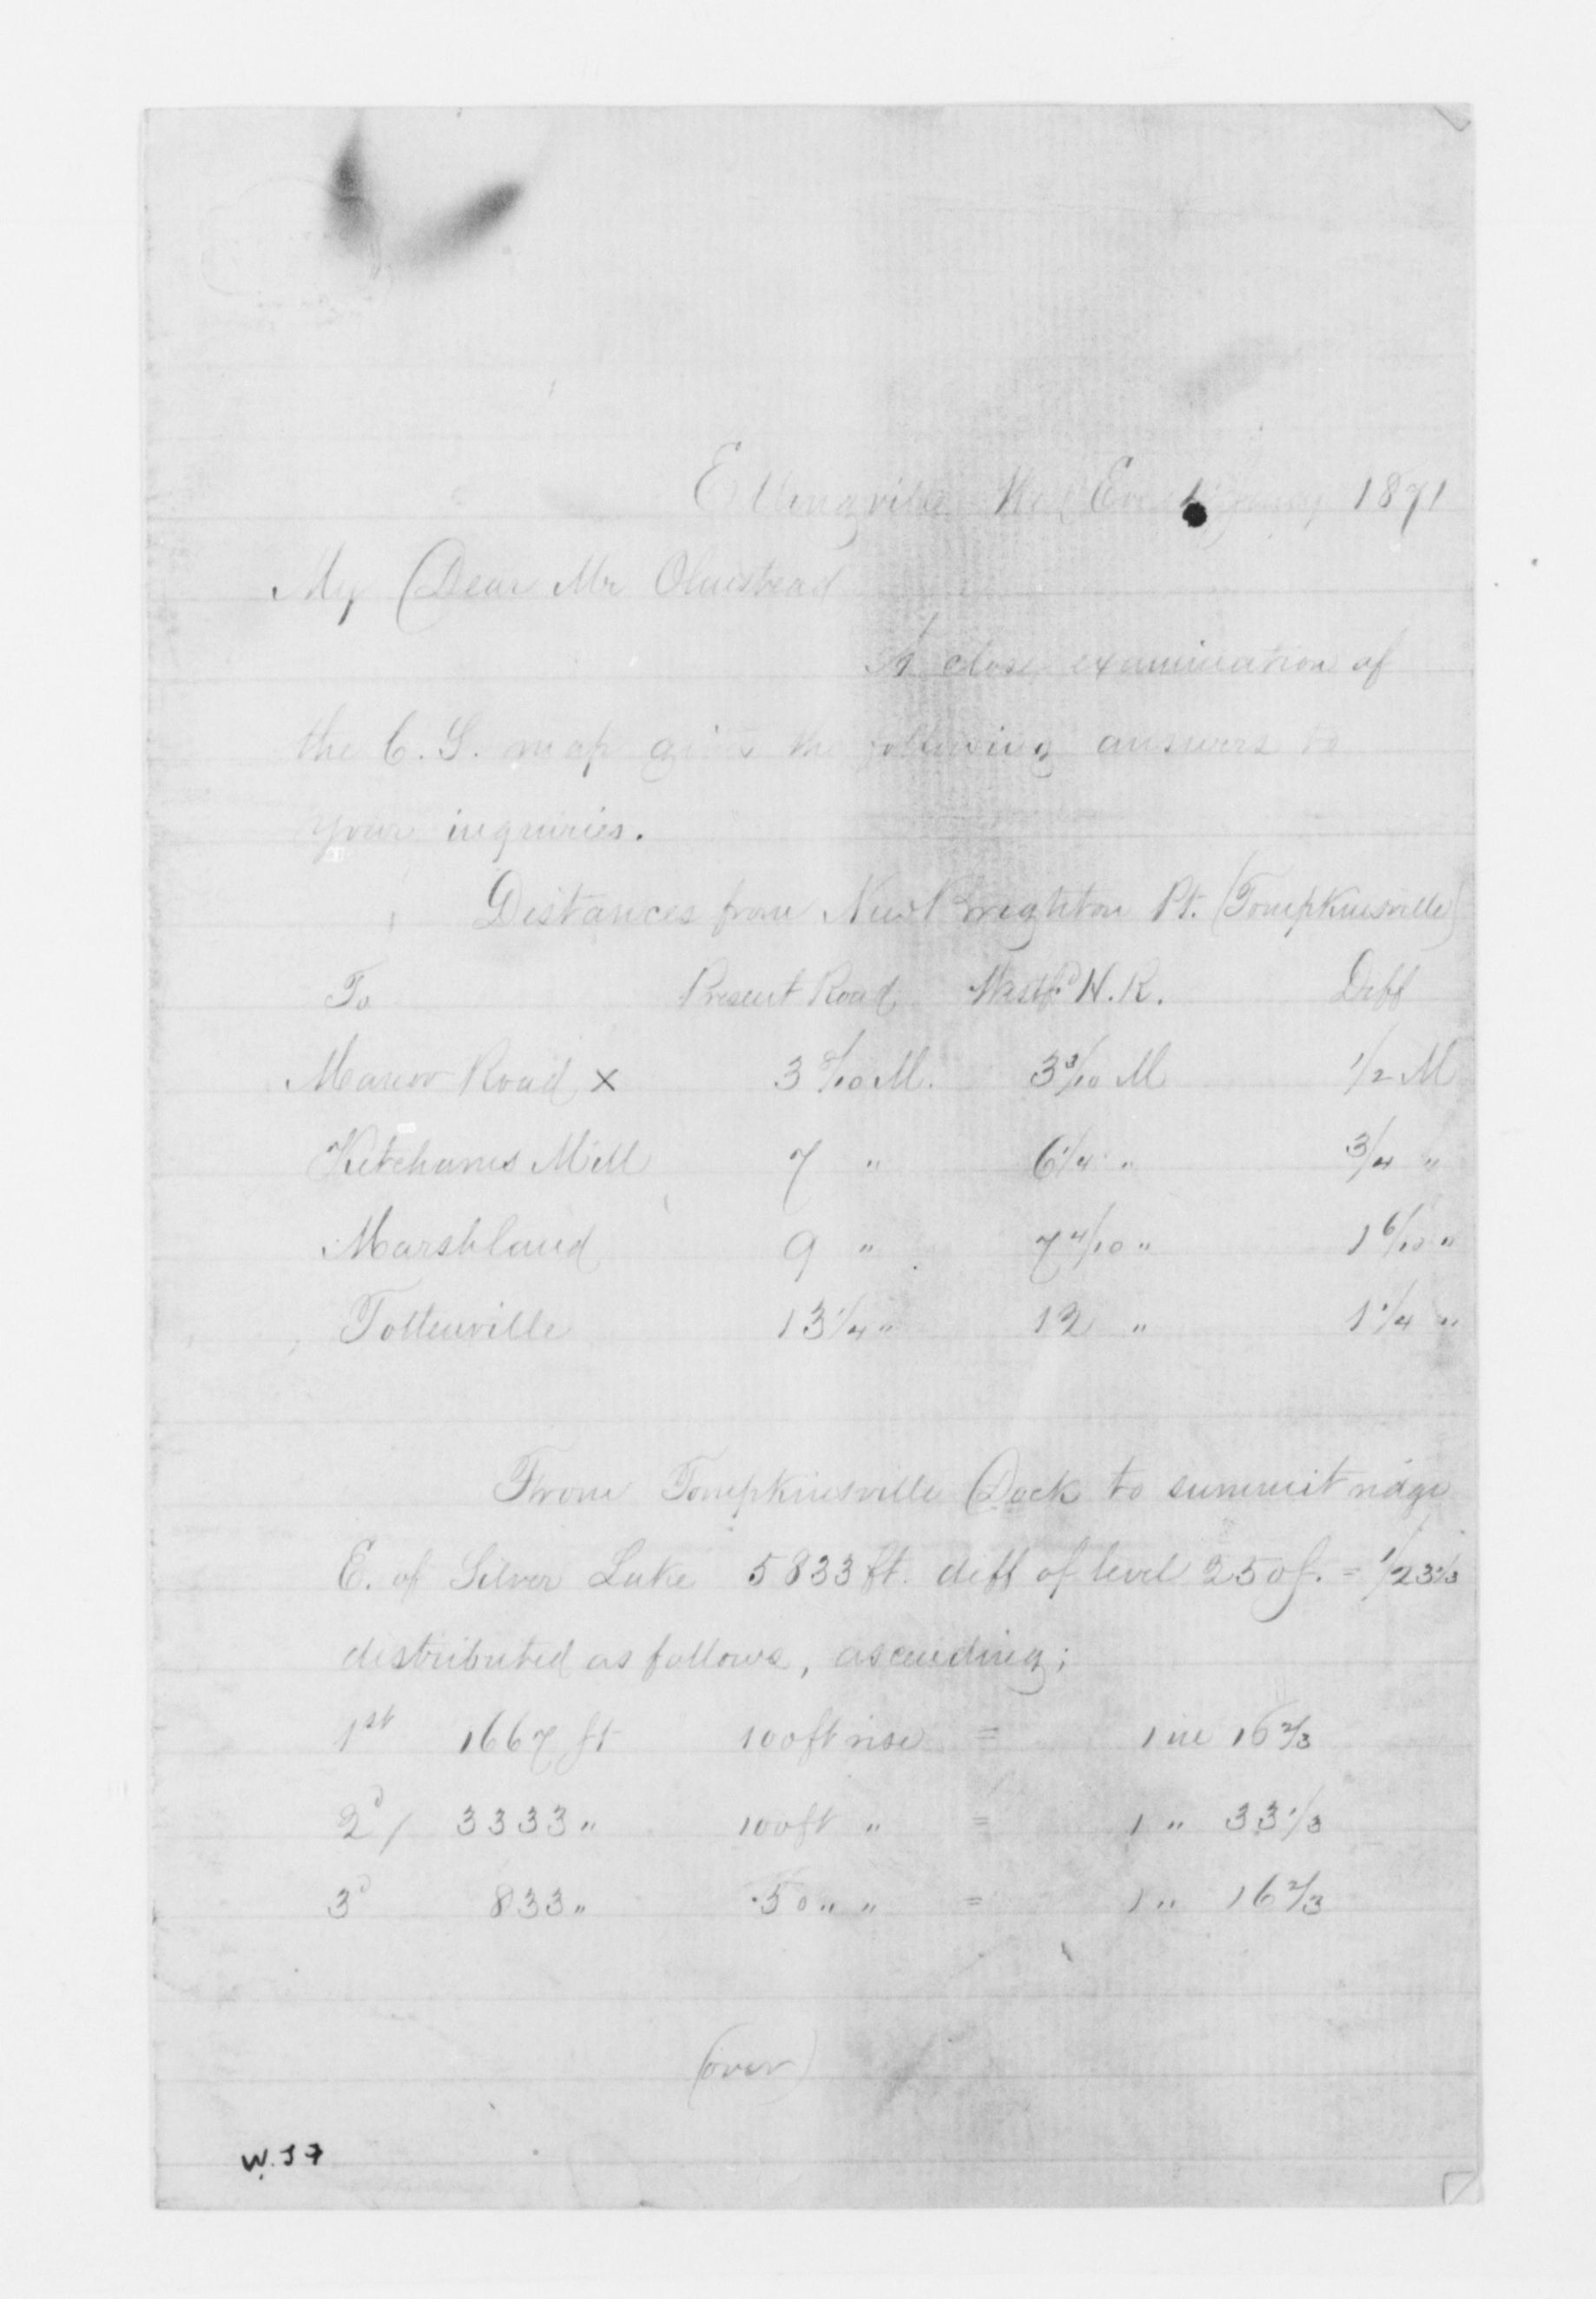 Eltingville Wed Eve 1871
My Dear Mr Olmstead
A close examination of
the C.S. map gives the following answers to
your inquiries.
Distances from New Brighton Pt. (Tompkinsville)
To Present Road H.R. Diff
Manor Road x 3 8/10 M. 3 3/10 M 1/2 M
Ketchams Mill 7 " 6 1/4 " 3/4 "
Marshland 9 " 7 4/10 " 1 6/10 "
Tottenville 13 1/4 " 12 " 1 1/4 "
From Tompkinsville Dock to summit ridge
E. of Silver Lake 5833 ft. diff of level 250 f. = 1/23 1/3
distributed as follows, ascending;
1st 1667 ft 100 ft rise = 1 in 16 2/3
2d / 3333 " 100 ft " = 1 " 33 1/3
3d 833 " 50 " " = 1 " 16 2/3
(over)